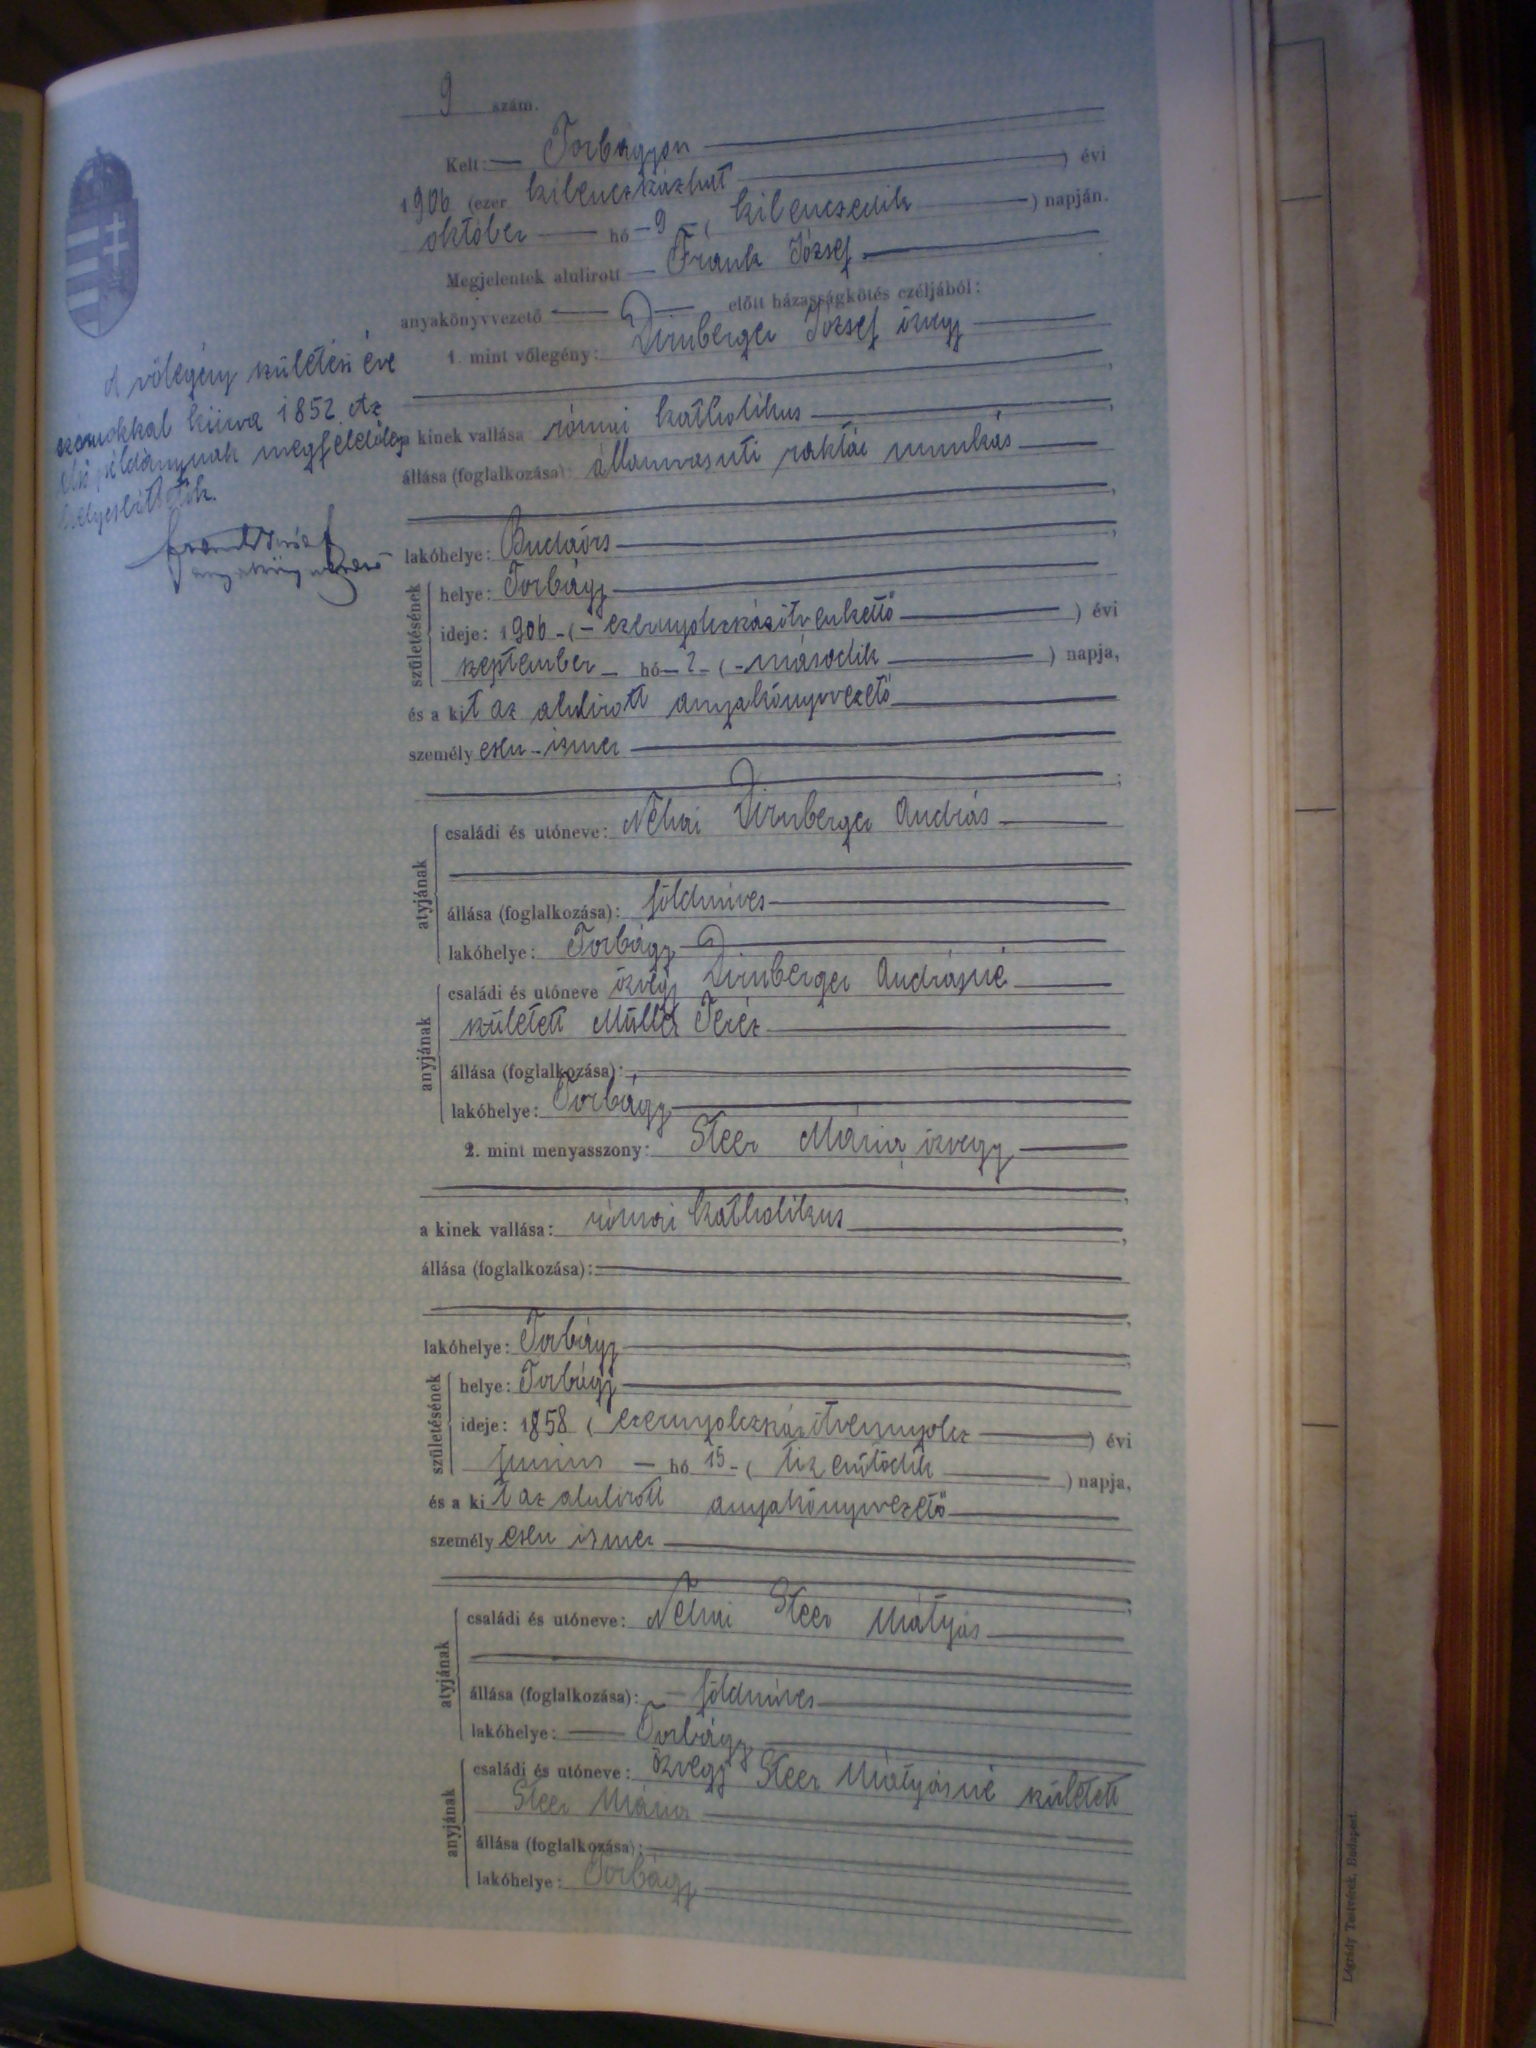 9 szám.
Kelt: Torbágyon
1906 (ezer kilenczszázhat ) évi
október hó 9 ( kilenczedik ) napján.
Megjelentek alulirott Frank József
anyakönyvvezető előtt házasságkötés czéljából:
1. mint vőlegény: Dirnberger József özvegy
a kinek vallása római katholikus
állása (foglalkozása): államvasuti raktár munkás
lakóhelye: Budaörs
születésének
helye: Torbágy
ideje: 1906 ( ezernyolczszázötvenkettő ) évi
szeptember hó 2 ( második ) napja,
és a kit az alulirott anyakönyvvezető
személyesen ismer
atyjának
családi és utóneve: Néhai Dirnberger András
állása (foglalkozása): földmíves
lakóhelye: Torbágy
anyjának
családi és utóneve özvegy Dirnberger Andrásné
született Müller Teréz
állása (foglalkozása):
lakóhelye: Torbágy
2. mint menyasszony: Steer Mária özvegy
a kinek vallása: római katholikus
állása (foglalkozása):
lakóhelye: Torbágy
születésének
helye: Torbágy
ideje: 1858 ( ezernyolczszázötvennyolcz ) évi
junius hó 15 ( tizenötödik ) napja,
és a kit az alulirott anyakönyvvezető
személyesen ismer
atyjának
családi és utóneve: Néhai Steer Mátyás
állása (foglalkozása): földmíves
lakóhelye: Torbágy
anyjának
családi és utóneve: özvegy Steer Mátyásné született
Steer Mária
állása (foglalkozása):
lakóhelye: Torbágy
A vőlegény születési éve
számokkal kiirva 1852. Az
első példánynak megfelelőleg
helyesbíttetik.
Frank József
anyakönyvvezető
Légrády Testvérek, Budapest